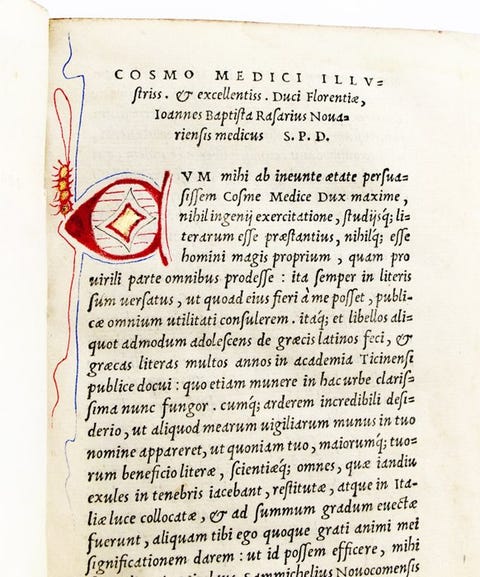 COSMO MEDICI ILLV=
ſtriss. & excellentiss. Duci Florentiæ,
Ioannes Baptiſta Raſarius Noua=
riensis medicus S. P. D.
CVM mihi ab ineunte ætate perſua=
ſiſſem Coſme Medice Dux maxime,
nihil ingenij exercitatione, ſtudijsq; li=
terarum eſſe præſtantius, nihilq; eſſe
homini magis proprium, quam pro
uirili parte omnibus prodeſſe : ita ſemper in literis
ſum uerſatus, ut quoad eius fieri à me poſſet, publi=
cæ omnium utilitati conſulerem. itaq; et libellos ali=
quot admodum adoleſcens de græcis latinos feci, &
græcas literas multos annos in academia Ticinensi
publice docui : quo etiam munere in hac urbe clariſ=
ſima nunc fungor. cumq; arderem incredibili deſi=
derio, ut aliquod mearum uigiliarum munus in tuo
nomine appareret, ut quoniam tuo, maiorumq; tuo=
rum beneficio literæ, ſcientiæq; omnes, quæ iandiu
exules in tenebris iacebant, reſtitutæ, atque in Ita=
liæ luce collocatæ, & ad ſummum gradum euectæ
fuerunt, aliquam tibi ego quoque grati animi mei
ſignificationem darem : ut id poſſem efficere, mihi
Sammichelius Nouocomensis